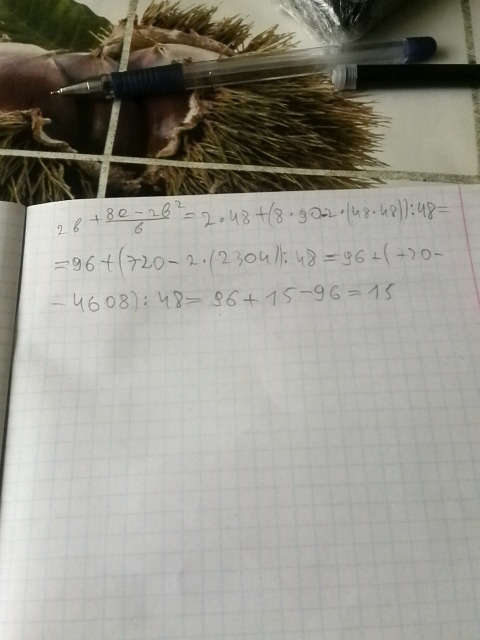 2b + \frac{8a - 2b^2}{b} = 2·48+(8·90-2·(48·48)):48=
=96+(720-2·(2304)):48=96+(720-
-4608):48=96+15-96=15